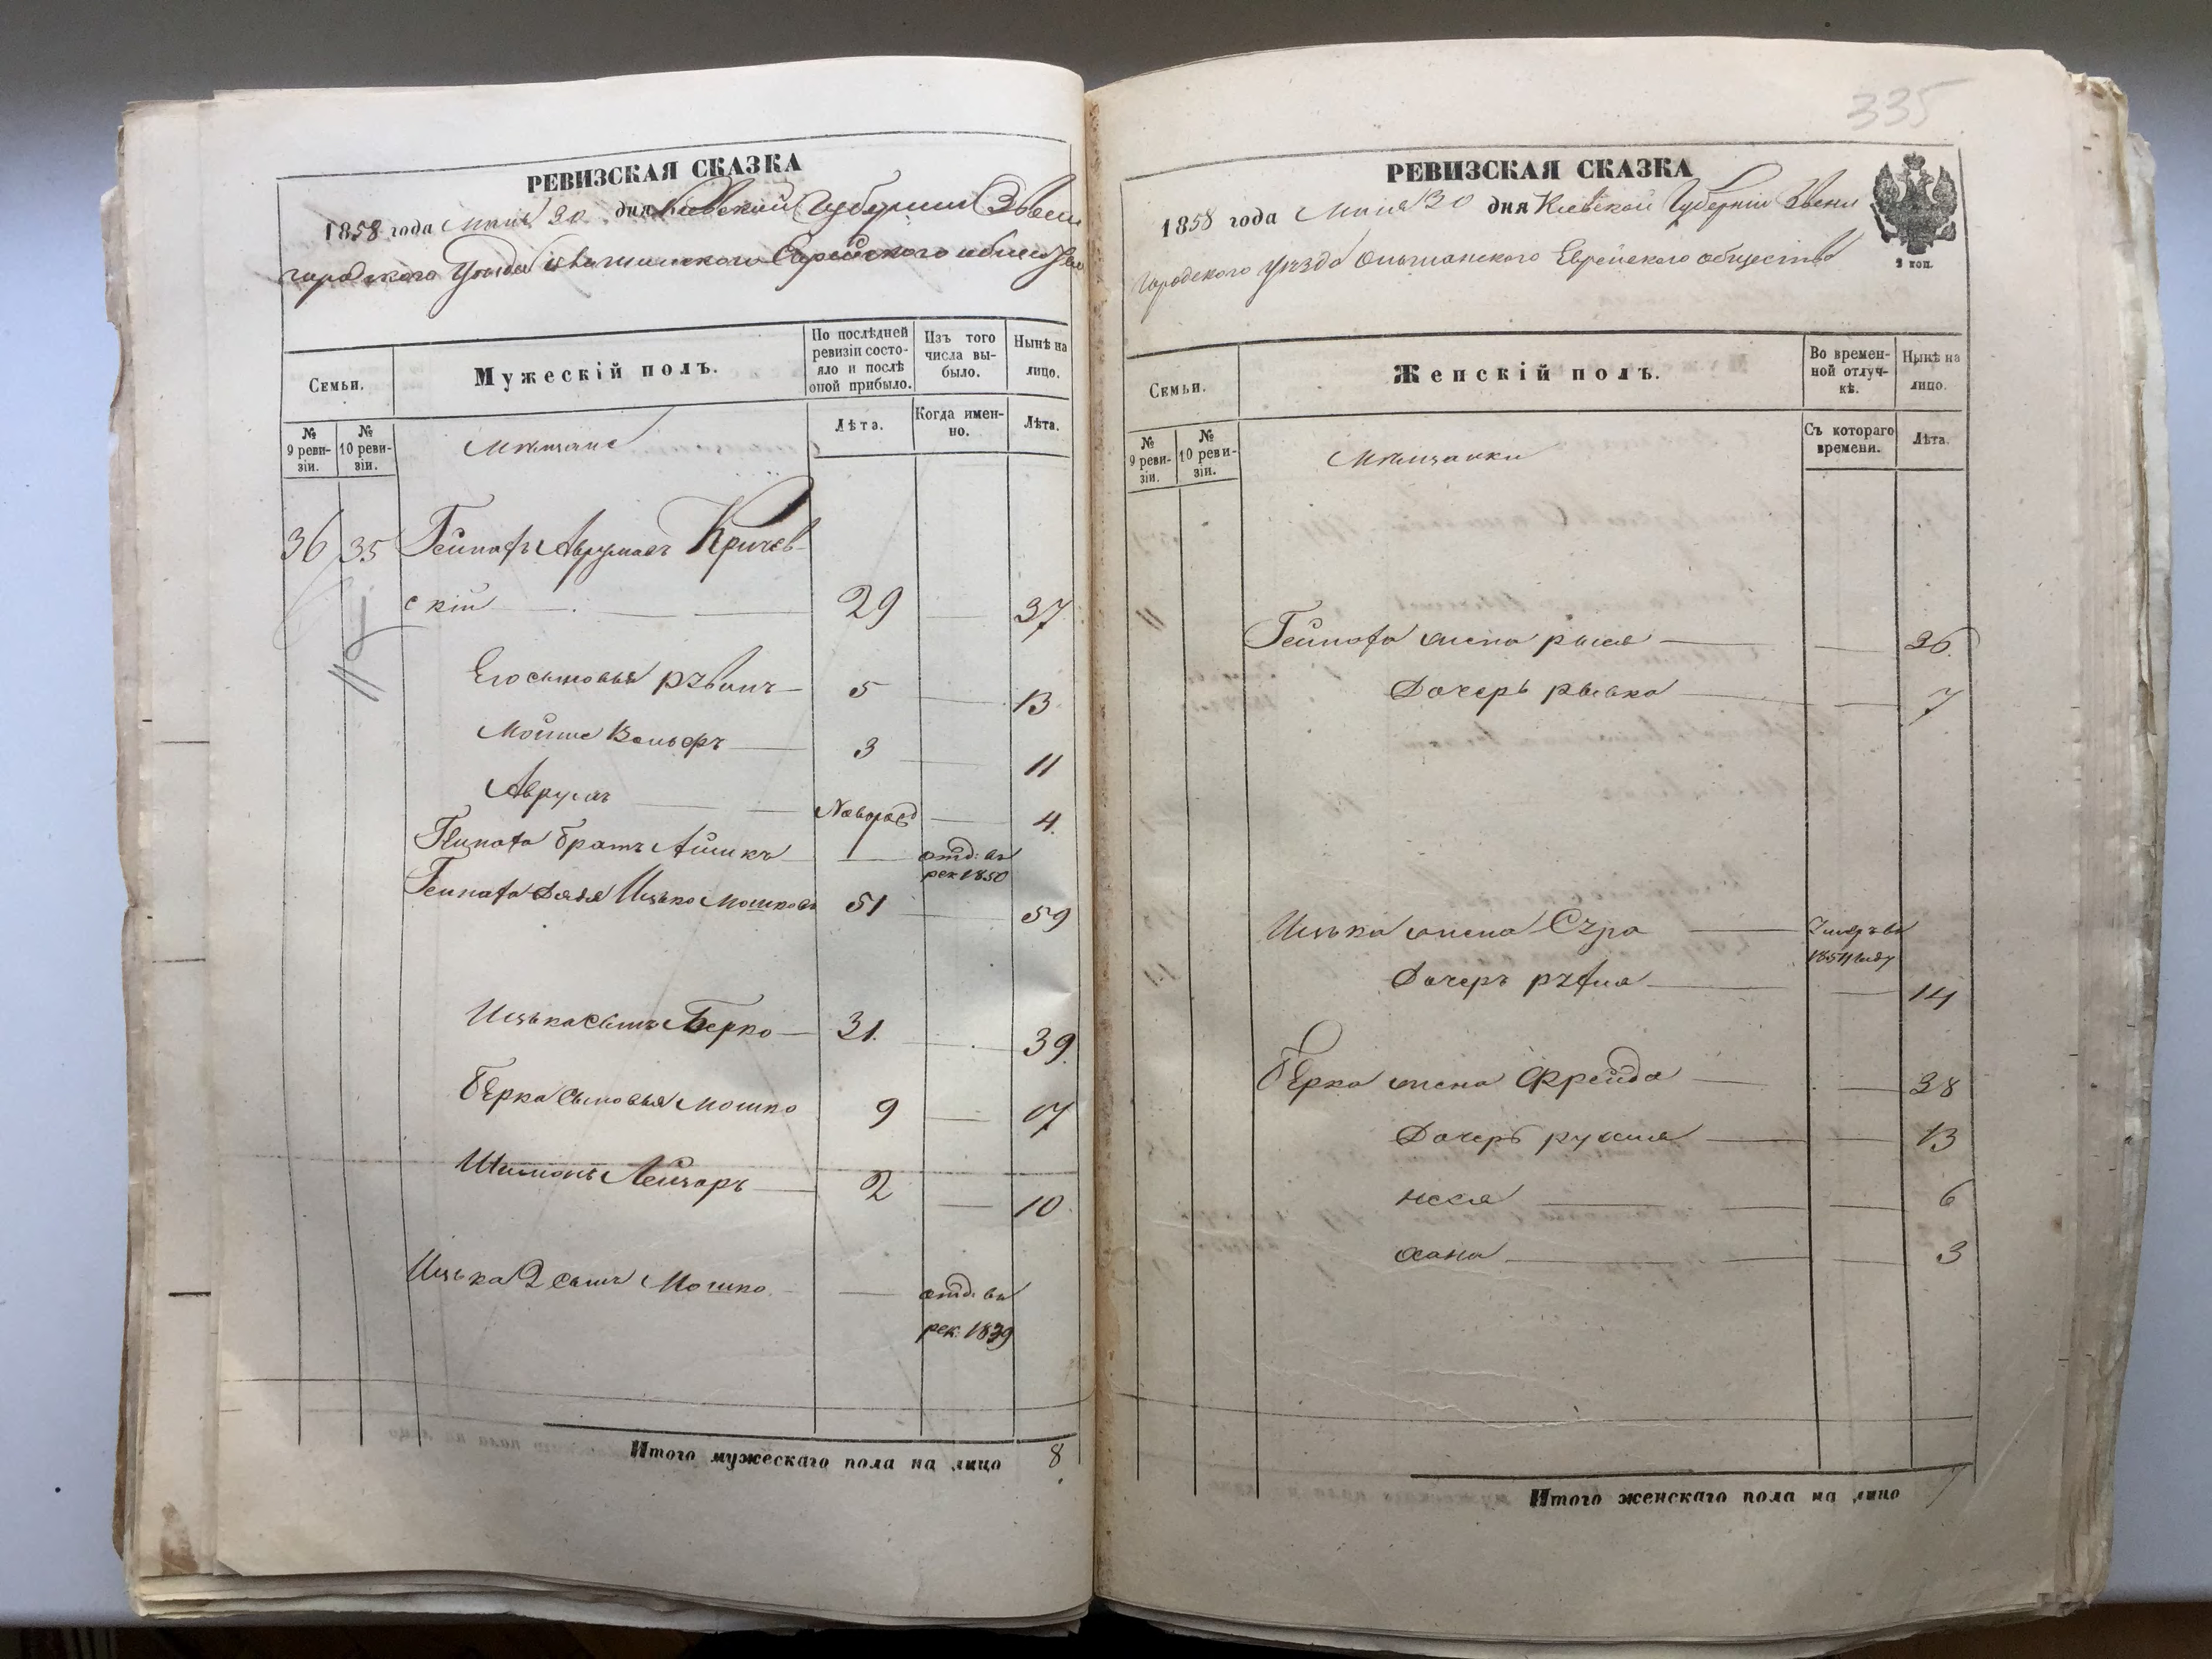 РЕВИЗСКАЯ СКАЗКА
1858 года Мая 30 дня Киевской Губерніи Звени
городского Уѣзда Ольшанского Еврейского общества
Семьи.
Мужескій полъ.
По послѣдней ревизіи состояло и послѣ оной прибыло.
Изъ того числа выбыло.
Нынѣ на лицо.
№ 9 ревизіи.
№ 10 ревизіи.
Мѣщане
Лѣта.
Когда именно.
Лѣта.
36 35 Гейнафъ Аврумовъ Кричев-
скій 29 37
Его сыновья 5 13
Мойше Вольфъ 3 11
Аврумъ Новорожд 4
Гейнафа братъ Айзикъ отд: въ
рек 1850
Гейнафа дядя Ицько Мошковъ 51 59
Ицька сынъ Берко 31. 39.
Берка сыновья Мошко 9 17
Шимонъ Лейзоръ 2 10
Ицька 2 сынъ Мошко. отд: въ
рек: 1839
Итого мужескаго пола на лицо 8
335
РЕВИЗСКАЯ СКАЗКА
1858 года Мая 30 дня Киевской Губерніи Звени
городского уѣзда Ольшанского Еврейского общества
2 коп.
Семьи.
Женскій полъ.
Во временной отлучкѣ.
Нынѣ на лицо.
№ 9 ревизіи.
№ 10 ревизіи.
Мѣщанки
Съ котораго времени.
Лѣта.
Гейнафа жена 36.
Дочерь рывка 7
Ицька жена Сура
Дочерь 14
Берка жена Фрейда 38
Дочерь рухля 13
6
хана 3
Итого женскаго пола на лицо 7